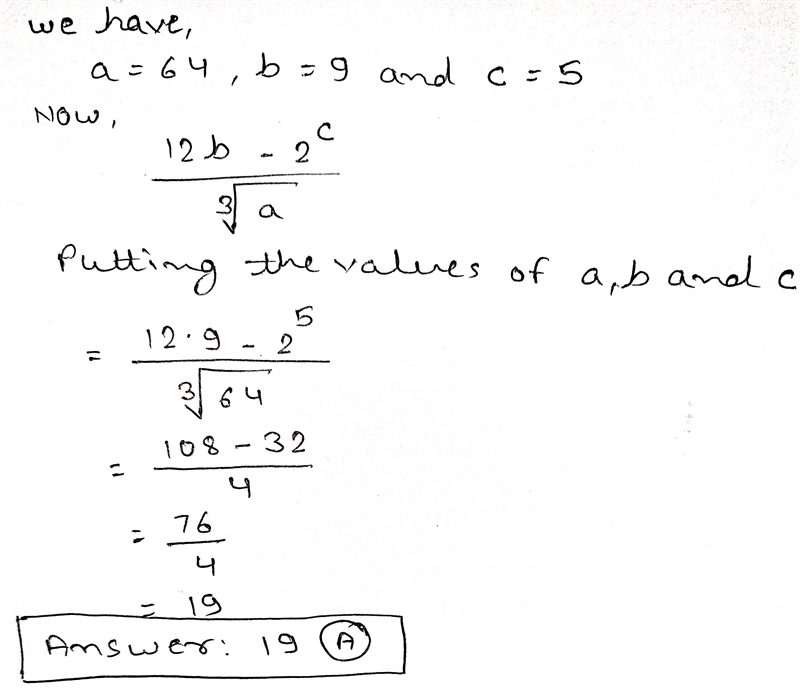 we have,
a = 64, b = 9 and c = 5
NOW,
12b - 2^c
∛a
Putting the values of a, b and c
= 12·9 - 2^5
∛64
= 108 - 32
4
= 76
4
= 19
Answer: 19 (A)